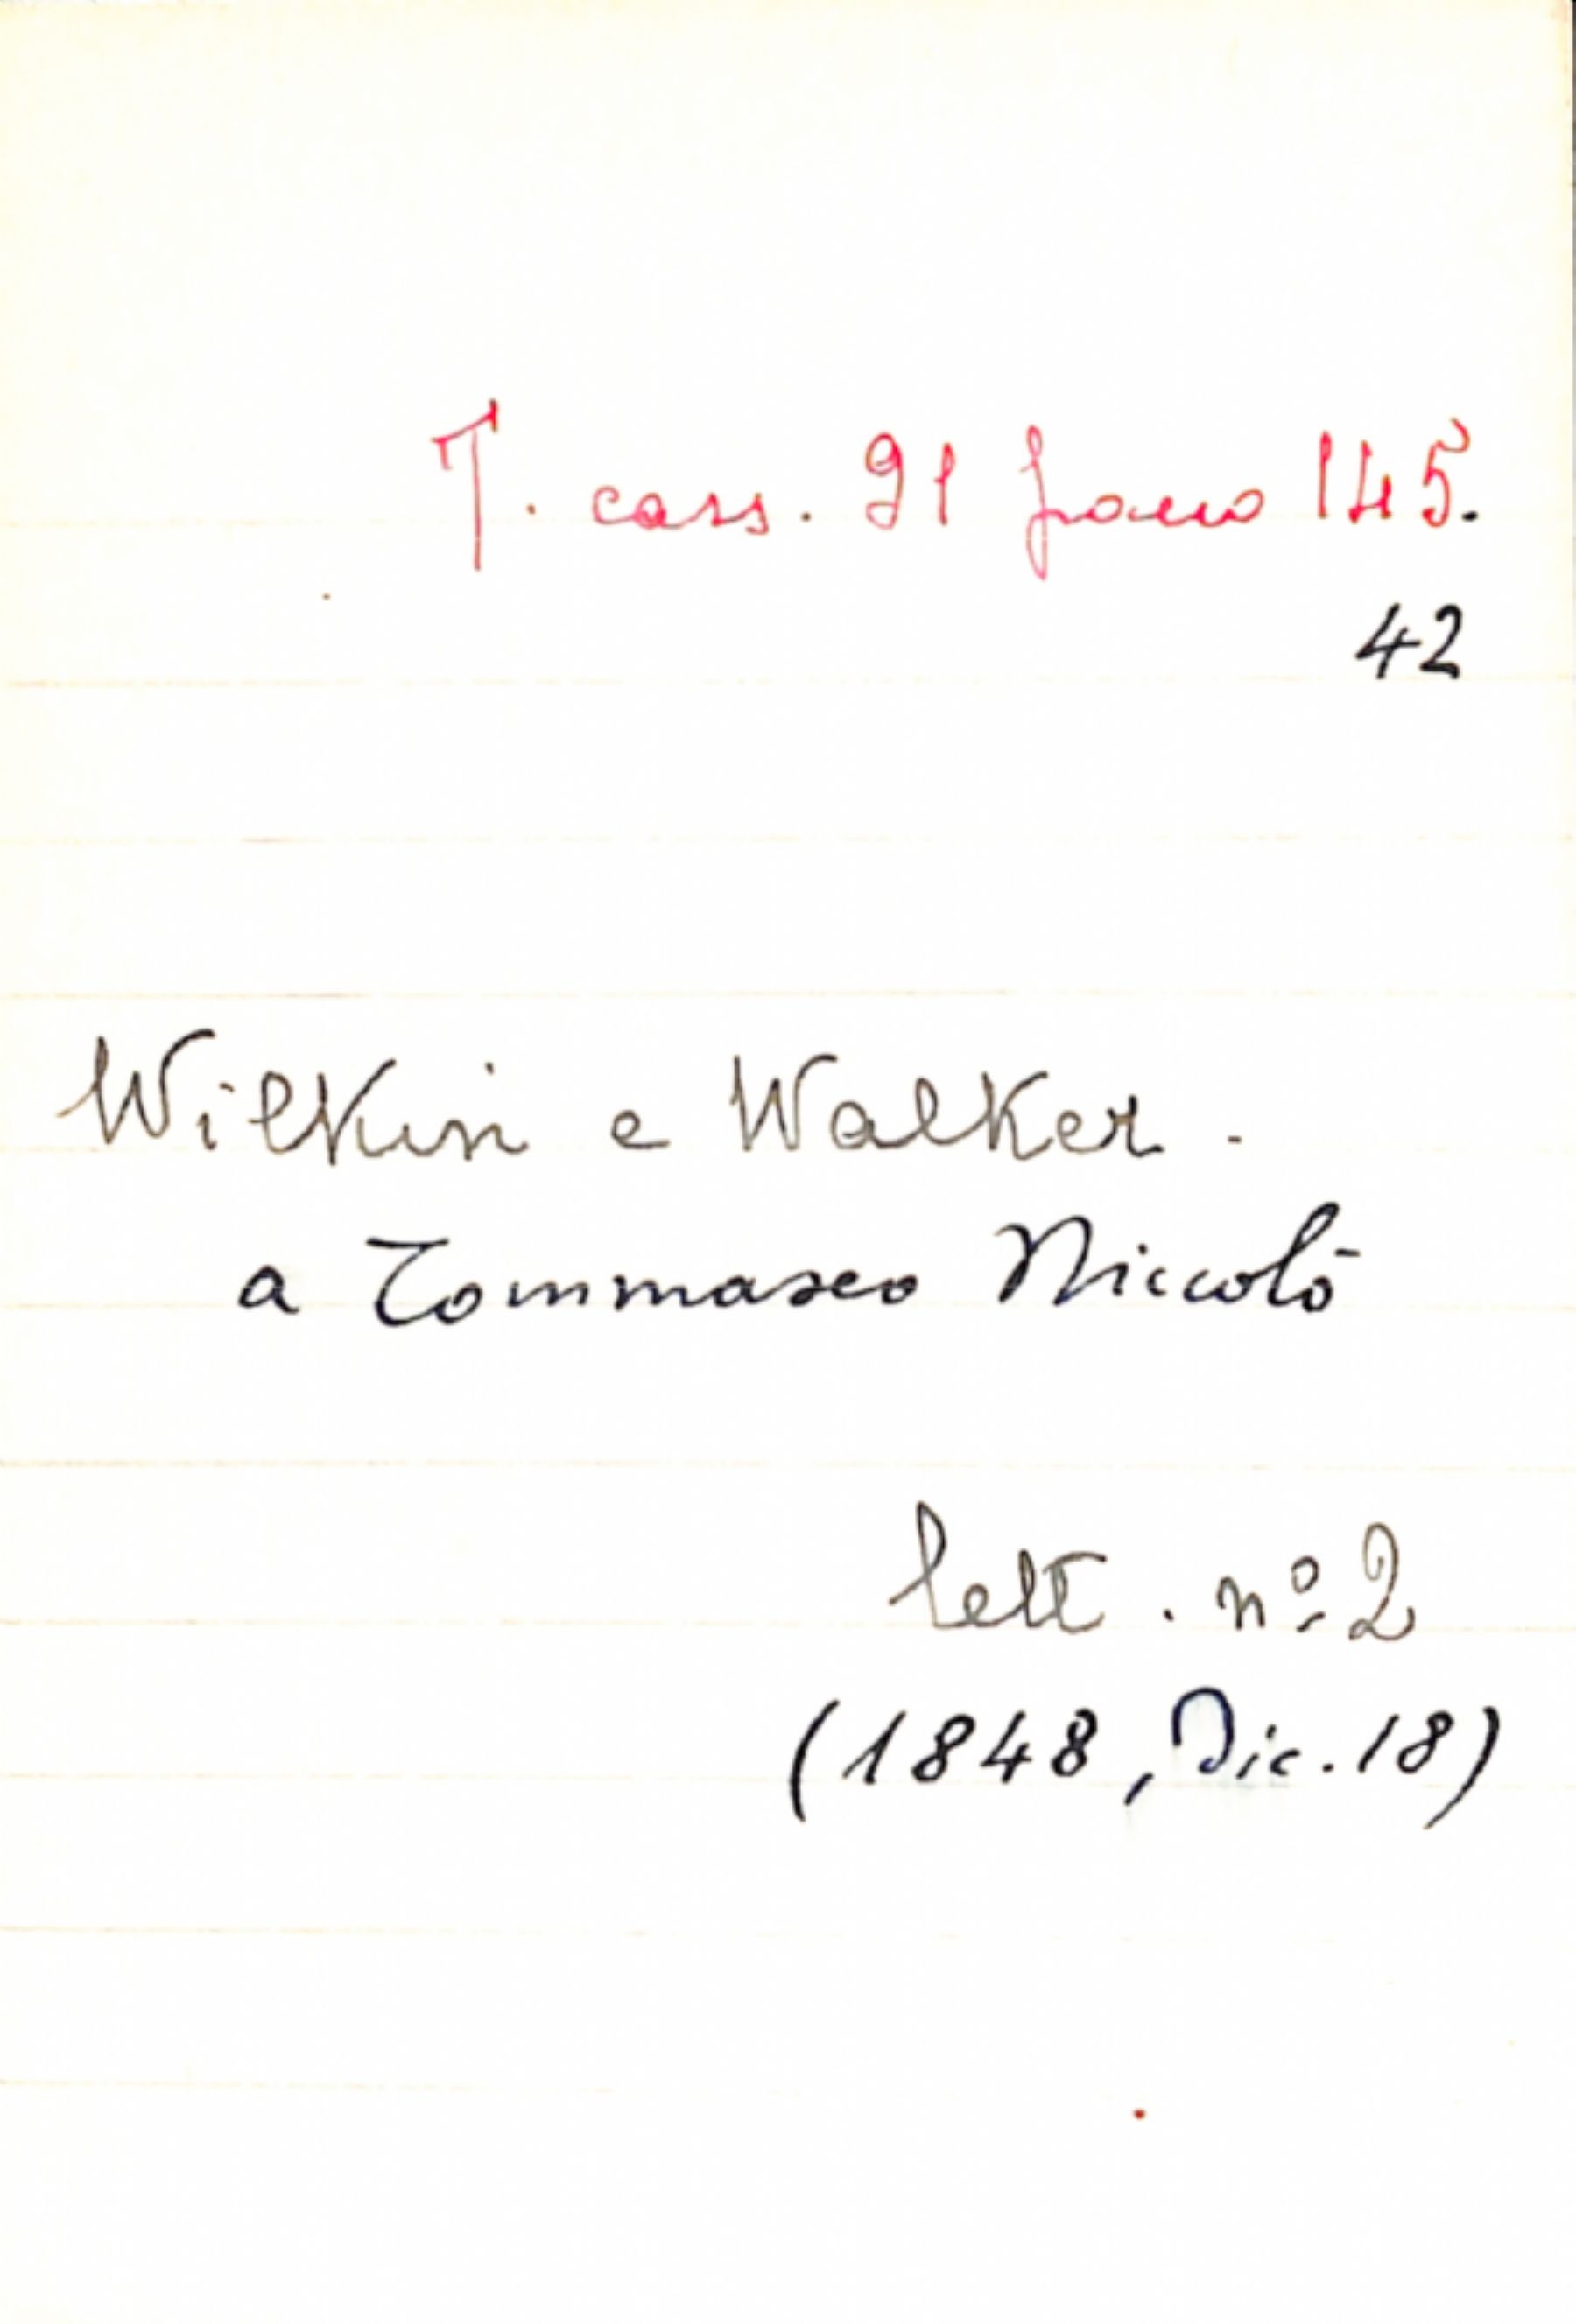 T. cass. 91
145.
42
Wilkin e Walker.
a Tommaseo Niccolò
lett. nº 2
(1848, Dic. 18)